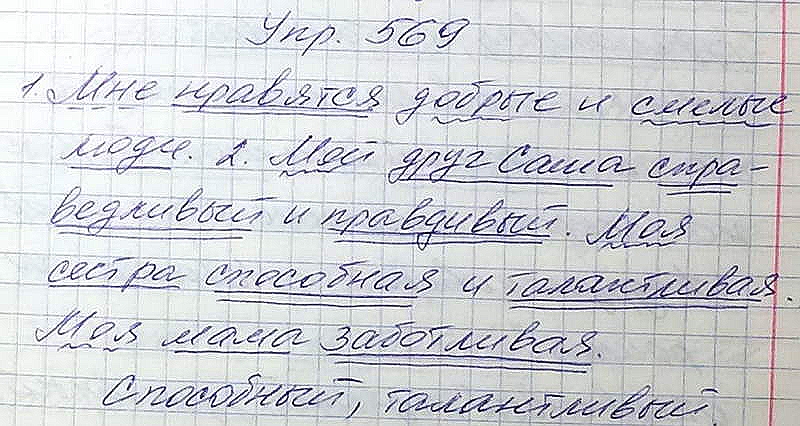 Упр. 569
1. Мне нравятся добрые и смелые
люди. 2. Мой друг Саша спра-
ведливый и правдивый. Моя
сестра способная и талантливая.
Моя мама заботливая.
Способный, талантливый.